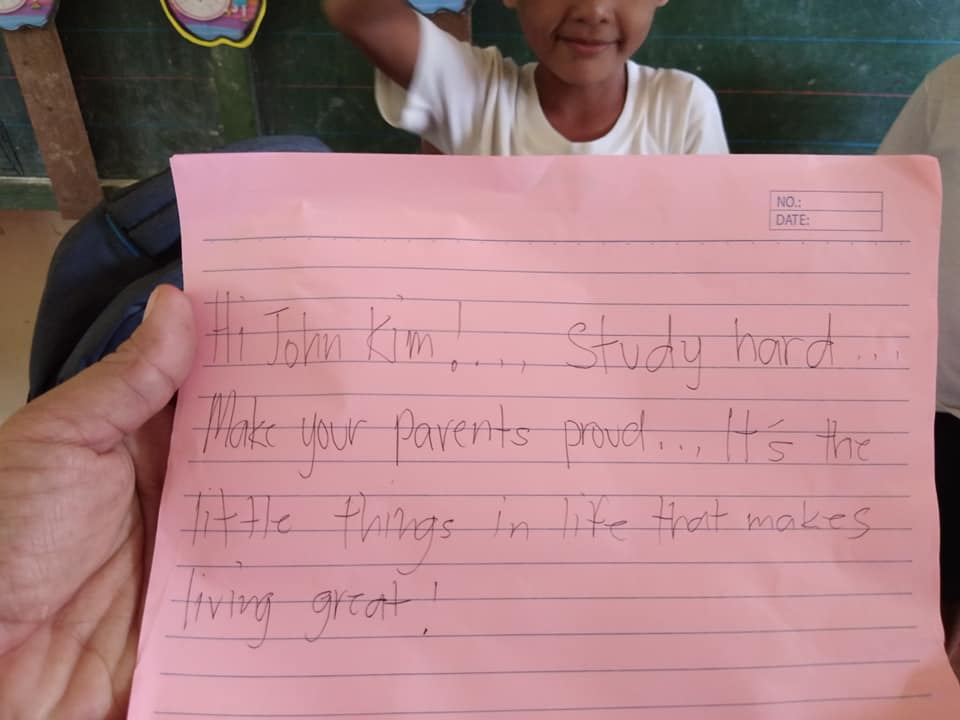 NO.:
DATE:
Hi John Kim!.... Study hard...
Make your parents proud... It's the
little things in life that makes
living great!